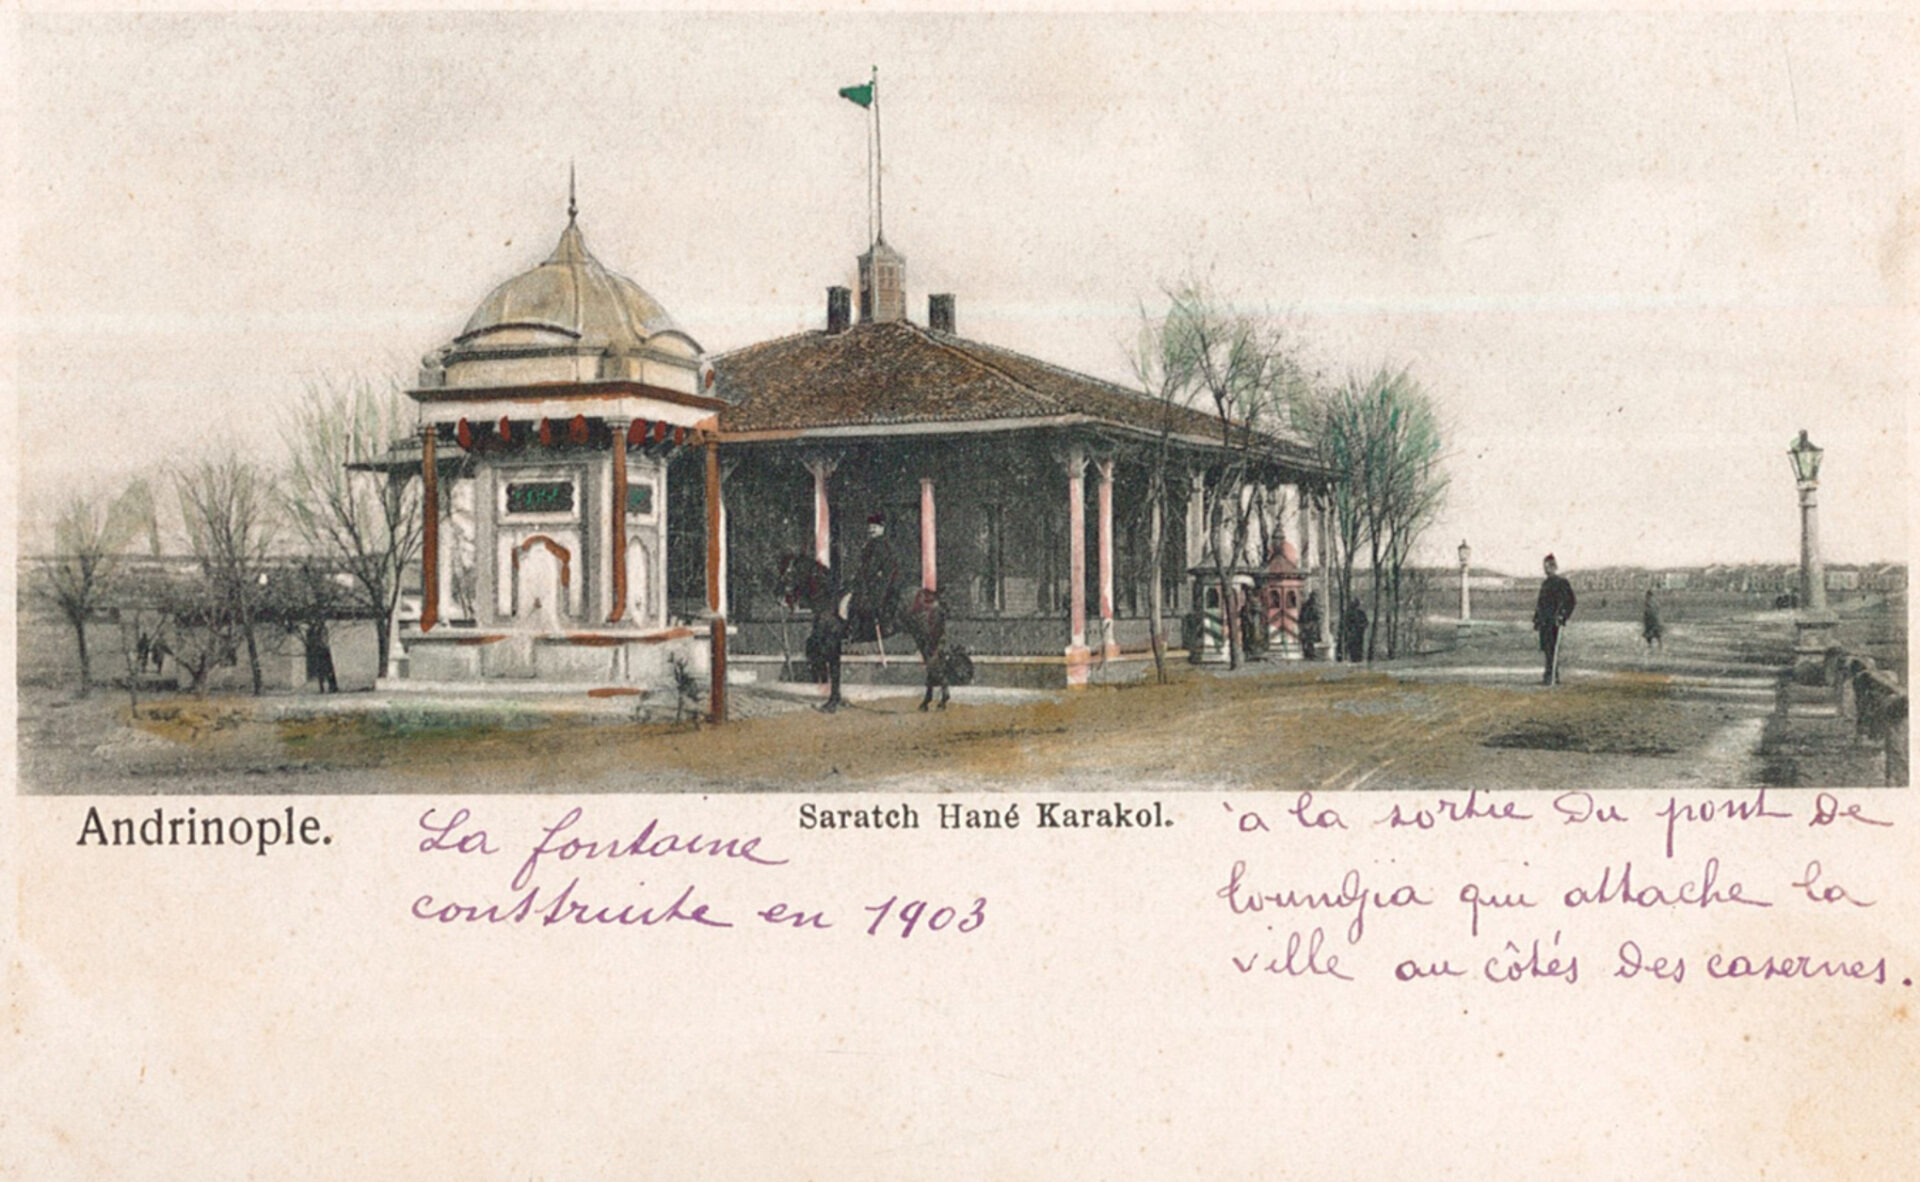 Andrinople.
Saratch Hané Karakol.
La fontaine
construite en 1903
à la sortie du pont de
toundjia qui attache la
ville au côtés des casernes.